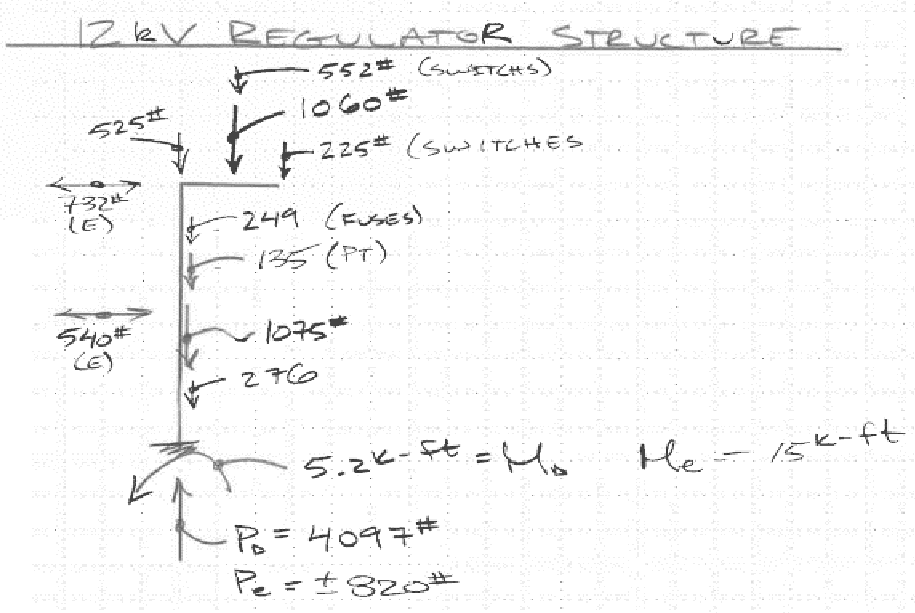 12kV REGULATOR STRUCTURE
552# (SWITCHS)
1060#
525#
225# (SWITCHES
732#
(E)
249 (FUSES)
135 (PT)
540#
(E)
1075#
276
5.2 k-ft = M_D   M_e = 15 k-ft
P_D = 4097#
P_e = ± 820#